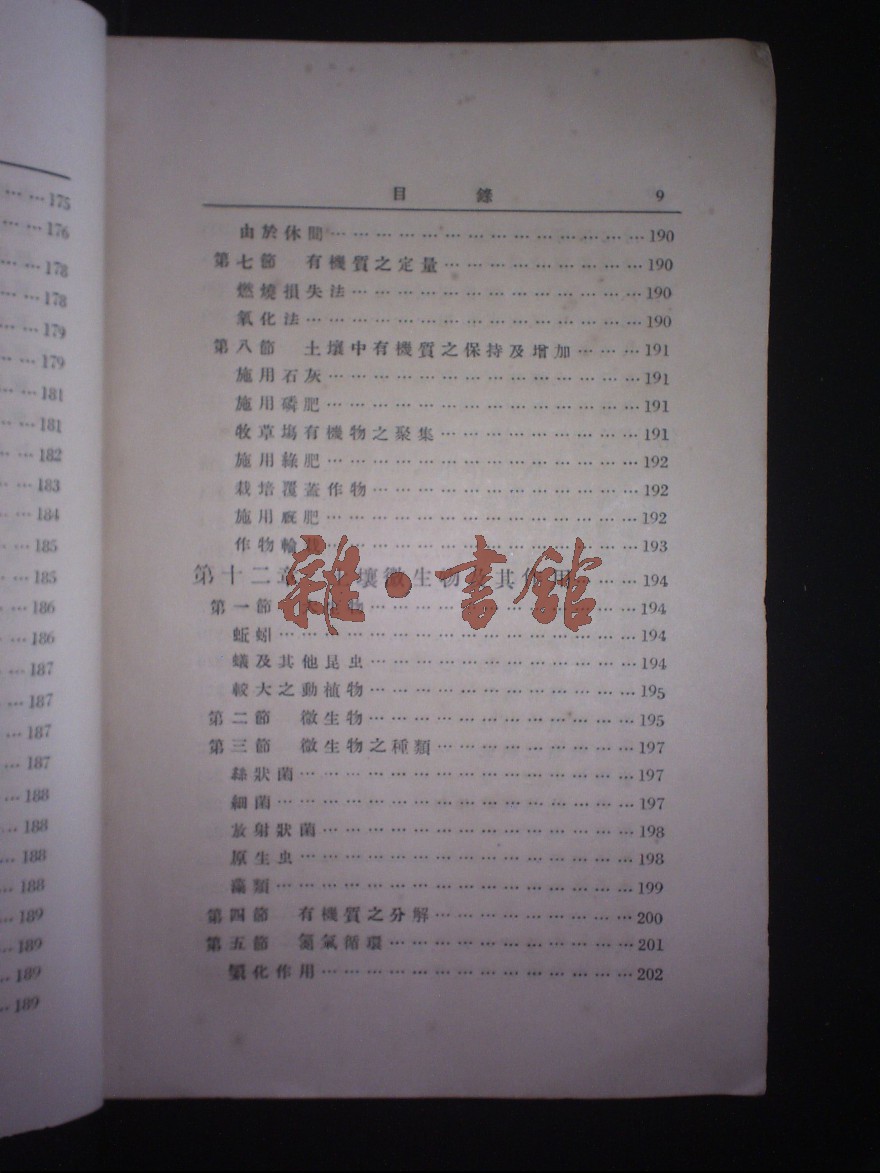 … …175
… …176
… …178
… …178
… …179
… …179
… …181
… …181
… …182
… …183
… …184
… …185
… …185
… …186
… …186
… …187
… …187
… …187
… …187
… …188
… …188
… …188
… …188
… 189
… 189
… 189
… 189
目錄 9
由於休閒 … … … … … … … … … … … … … …190
第七節 有機質之定量 … … … … … … … … …190
燃燒損失法 … … … … … … … … … … … … …190
氧化法 … … … … … … … … … … … … … … …190
第八節 土壤中有機質之保持及增加 … … …191
施用石灰 … … … … … … … … … … … … … …191
施用磷肥 … … … … … … … … … … … … … …191
牧草塲有機物之聚集 … … … … … … … … …191
施用綠肥 … … … … … … … … … … … … … …192
栽培覆蓋作物 … … … … … … … … … … … …192
施用廐肥 … … … … … … … … … … … … … …192
作物輪栽 … … … … … … … … … … … … … …193
第十二章 土壤微生物及其作用 … … …194
第一節 物 … … … … … … … … … … … …194
蚯蚓 … … … … … … … … … … … … … … … …194
蟻及其他昆虫 … … … … … … … … … … … …194
較大之動植物 … … … … … … … … … … … …195
第二節 微生物 … … … … … … … … … … … …195
第三節 微生物之種類 … … … … … … … … …197
絲狀菌 … … … … … … … … … … … … … … …197
細菌 … … … … … … … … … … … … … … … …197
放射狀菌 … … … … … … … … … … … … … …198
原生虫 … … … … … … … … … … … … … … …198
藻類 … … … … … … … … … … … … … … … …199
第四節 有機質之分解 … … … … … … … … …200
第五節 氮氣循環 … … … … … … … … … … …201
氨化作用 … … … … … … … … … … … … … …202
雜·書館